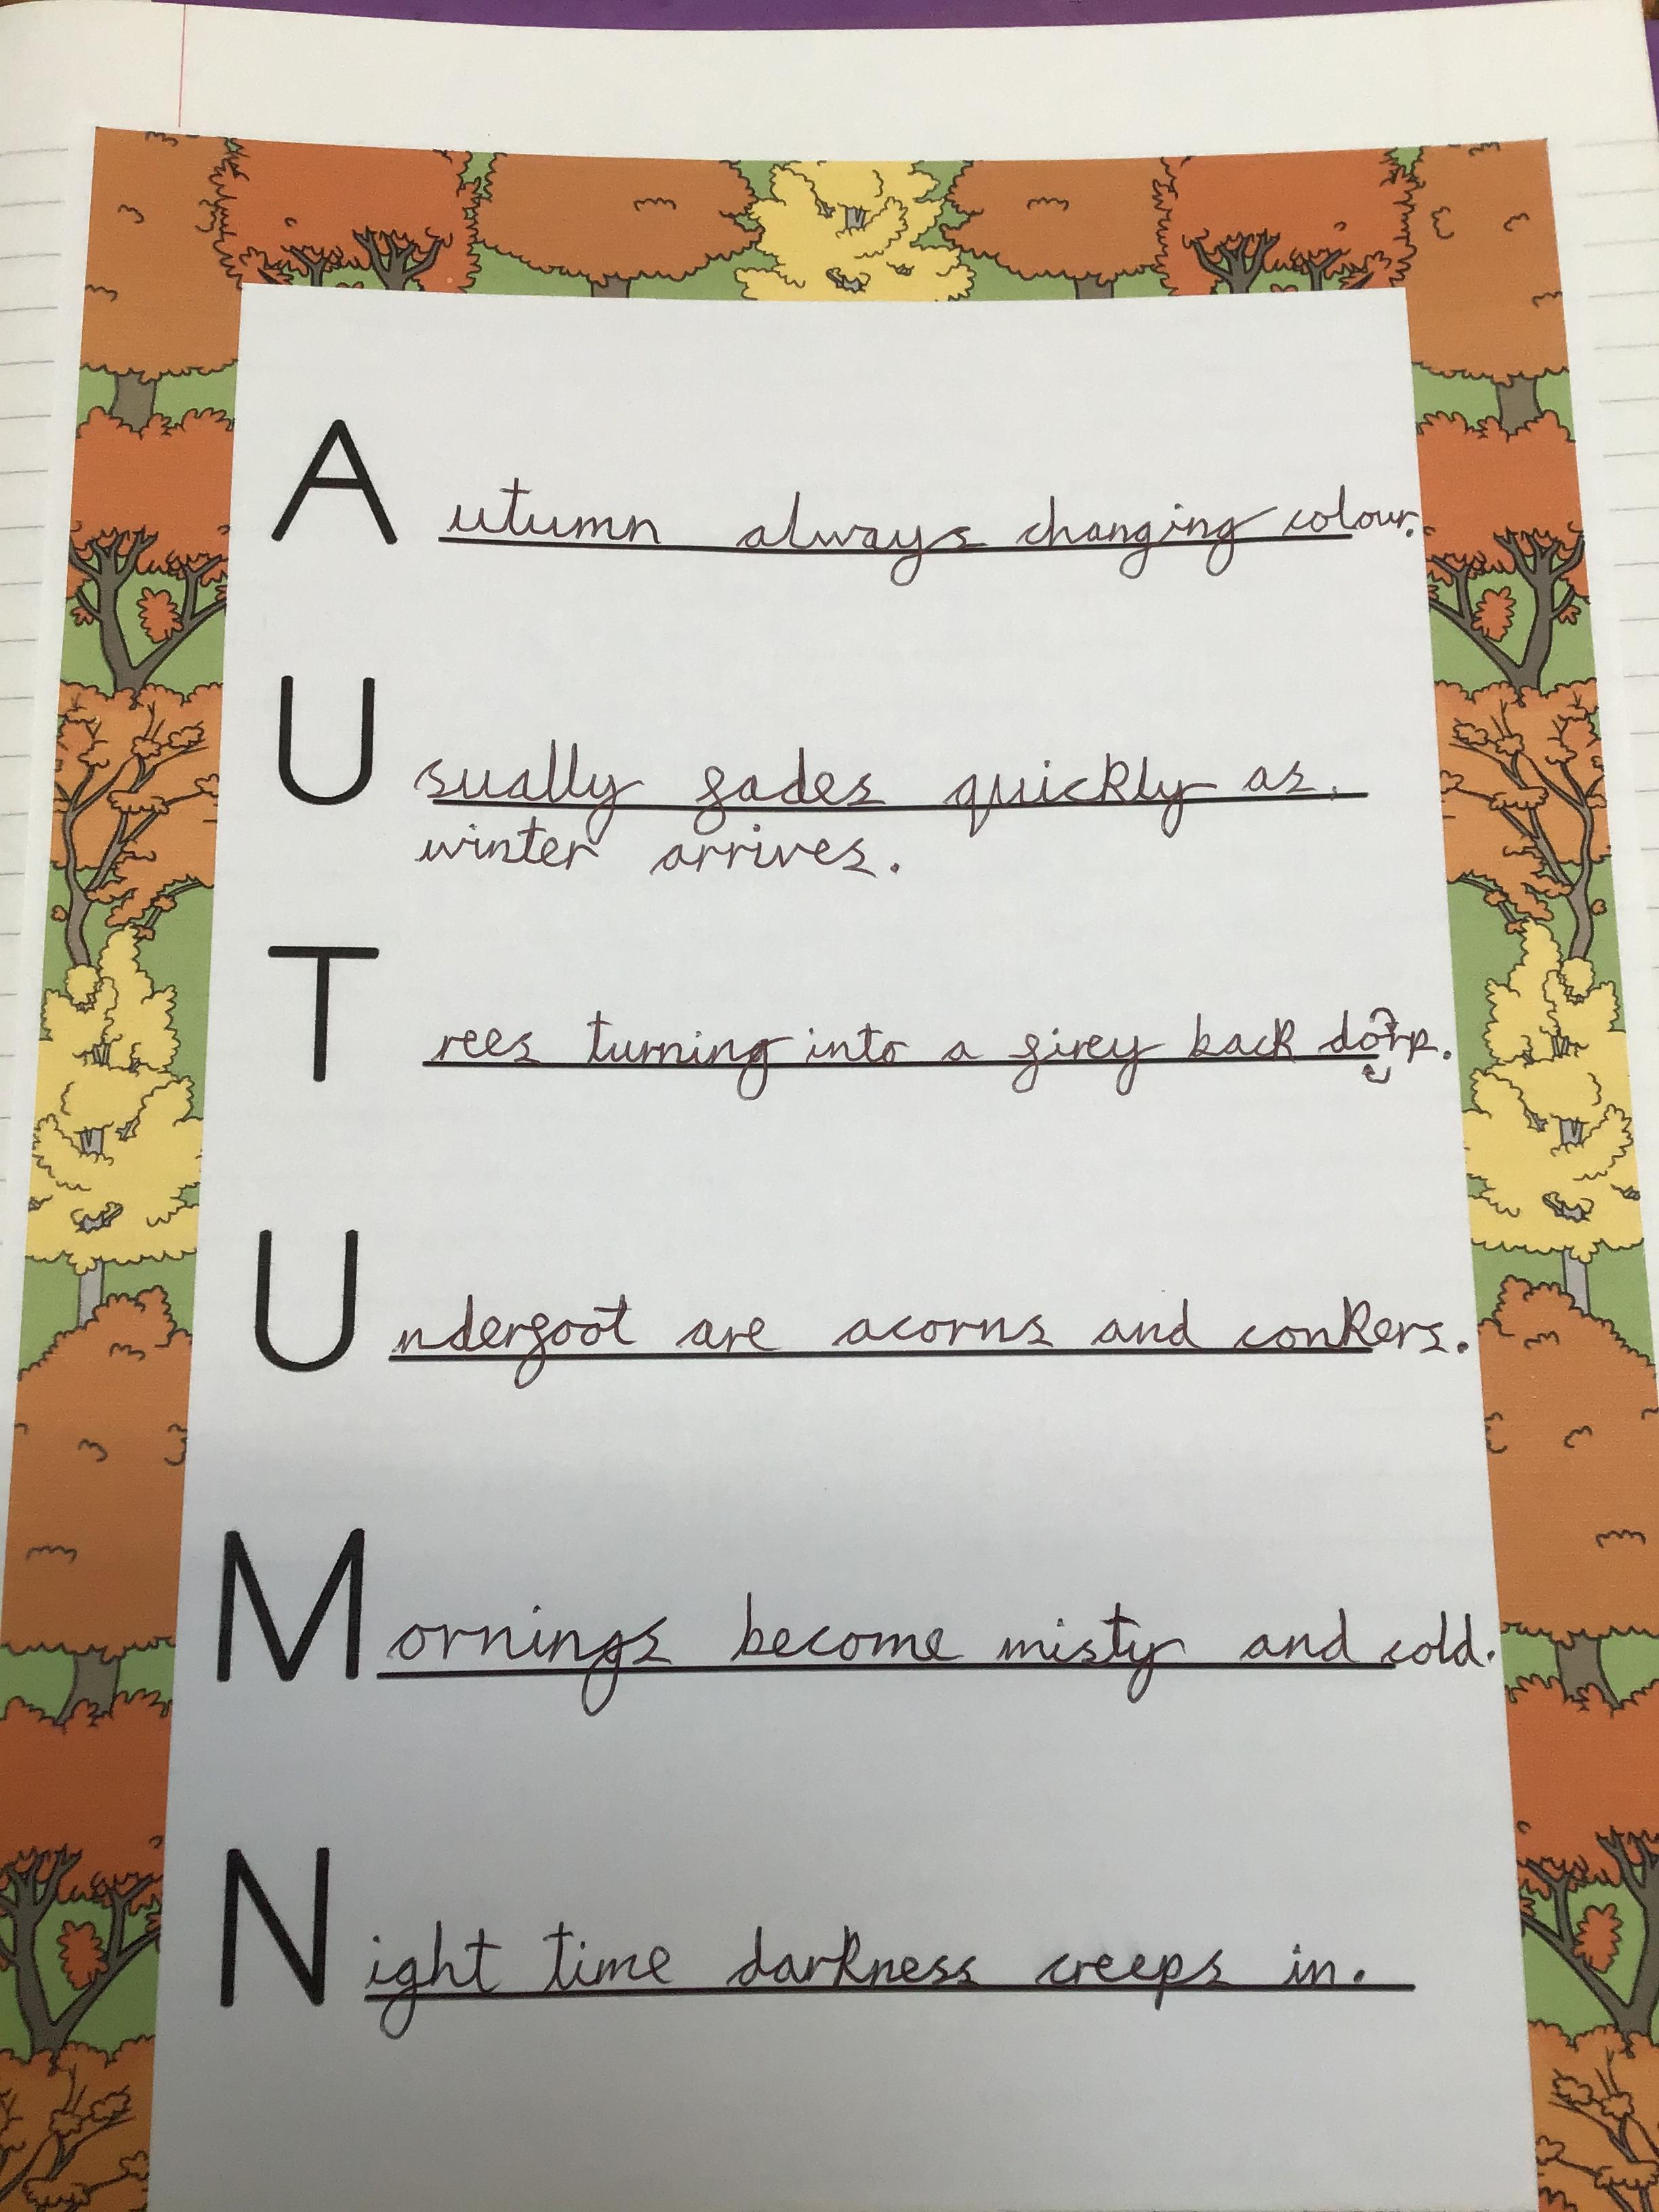 Autumn always changing colour.
Usually fades quickly as.
winter arrives.
Trees turning into a firey back dorp.
Underfoot are acorns and conkers.
Mornings become misty and cold.
Night time darkness creeps in.